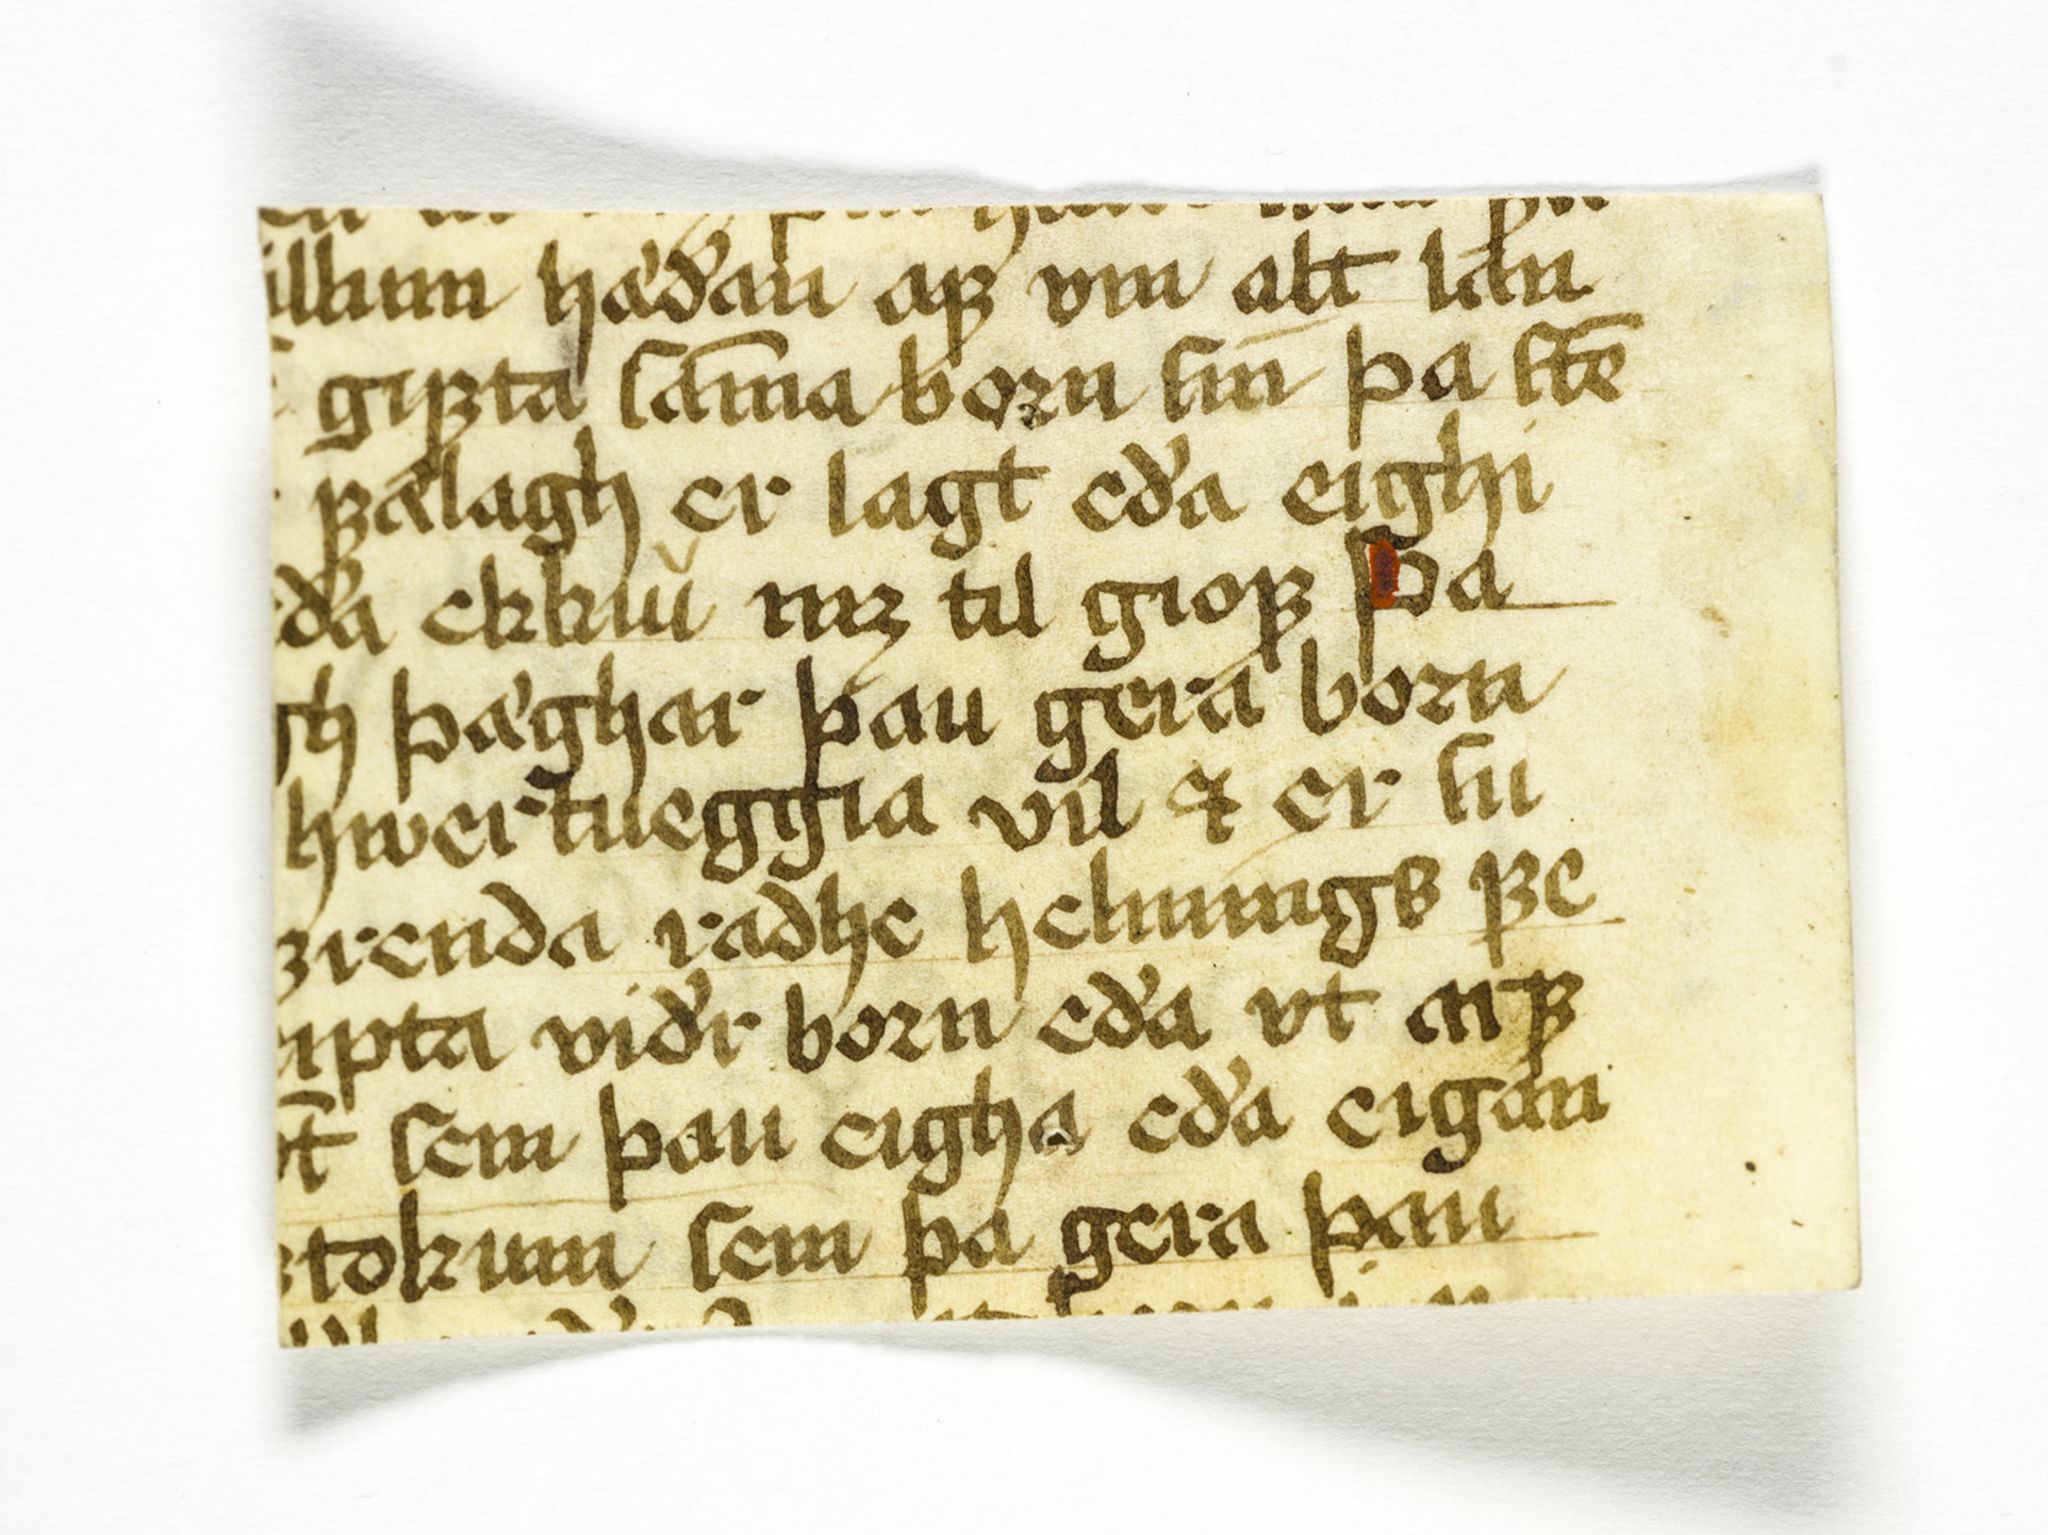 illum hæðan aꝼ vm alt lan
giꝼta sām̄a born sin̄ þa stē
ꝼælagh er lagt eða eighi
eða ekkiu mꝫ til gioꝼ þa
gh þæghar þau gera born
hwertueggia vil ⁊ er su
renda radhe helnīngs ꝼe
ipta viðr born eða vt arꝼ
sem þau eigha eða eigan
tokum sem þa gera þau